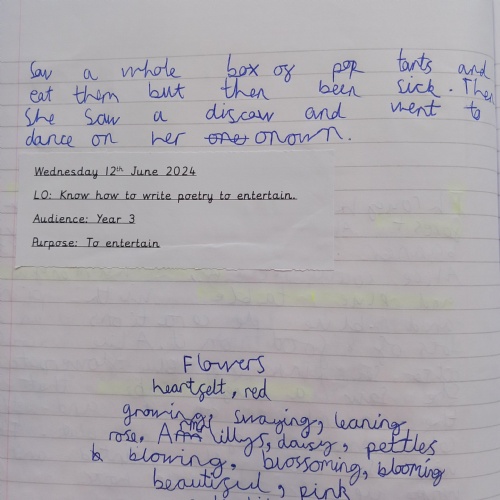 Saw a whole box of pop tarts and
eat them but then been sick. Then
she saw a discow and went to
dance on her onown.
Wednesday 12th June 2024
LO: Know how to write poetry to entertain.
Audience: Year 3
Purpose: To entertain
Flowers
heartfelt, red
growing, swaying, leaning
rose, lillys, daisy, pettles
blowing, blossoming, blooming
beautiful, pink